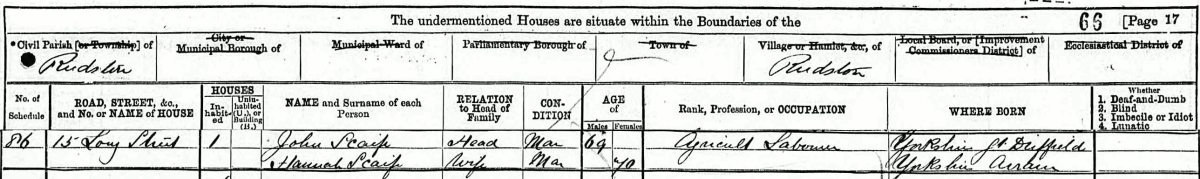 The undermentioned Houses are situate within the Boundaries of the
66 [Page 17
Civil Parish [or Township] of
City or Municipal Borough of
Municipal Ward of
Parliamentary Borough of
Town of
Village or Hamlet, &c, of
Local Board, or [Improvement Commissioners District] of
Ecclesiastical District of
Rudston
Rudston
No. of Schedule
ROAD, STREET, &c., and No. or NAME of HOUSE
HOUSES
In-habit-ed
Unin-habited (U.), or Building (B.)
NAME and Surname of each Person
RELATION to Head of Family
CON-DITION
AGE of
Males
Females
Rank, Profession, or OCCUPATION
WHERE BORN
Whether
1. Deaf-and-Dumb
2. Blind
3. Imbecile or Idiot
4. Lunatic
86 15 Long Street 1 John Scaife Head Mar 69 Agricult Labourer Yorkshire Gt Driffield
Hannah Scaife Wife Mar 70 Yorkshire Arram